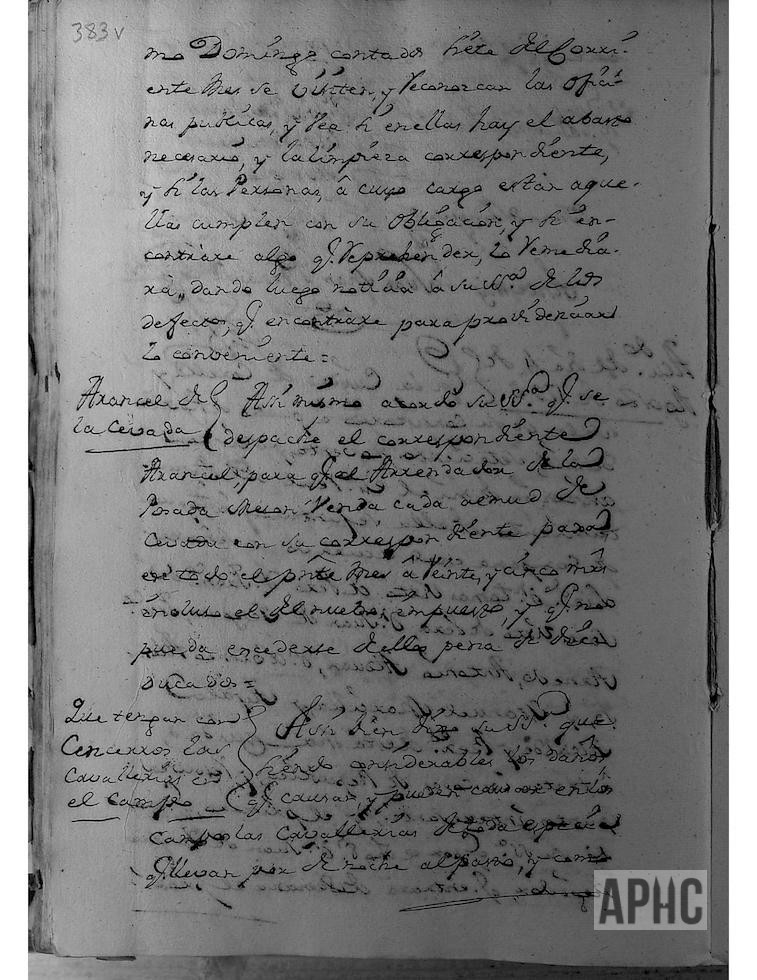 383v
mo Domingo contados siete del Corri-
ente Mes se visiten, y Reconozcan las ofici-
nas publicas, y vea si en ellas hay el abasto
necesario, y la limpieza correspondiente,
y si las Personas, â cuyo cargo estàn aque-
llas cumplen con su obligacion, y si en-
contrare algo q.e Reprehender, lo Remedia-
rà, dando luego noticia â su SS.a de los
defectos, q.e encontrare para providenciar
lo conveniente =
Arancel de
la Cevada
Asi mismo acordó su SS.a q.e se
despache el correspondiente
Arancel, para q.e el Arrendador de la
Posada Meson Venda cada almud de
Cevada con su correspondiente para
en todo el pnte Mes â Veinte, y cinco mrs
incluso el del nuebo impuesto, y q.e no
pueda excederse de ellos pena de diez
Ducados =
Que tengan con
Cencerros las
Cavallerias en
el Campo
Asi bien dixo su SS.a que
siendo considerables los daños
q.e causan, y pueden causar en los
Campos las Cavallerias de toda especie
q.e llevan por de noche al pasto, y como
APHC